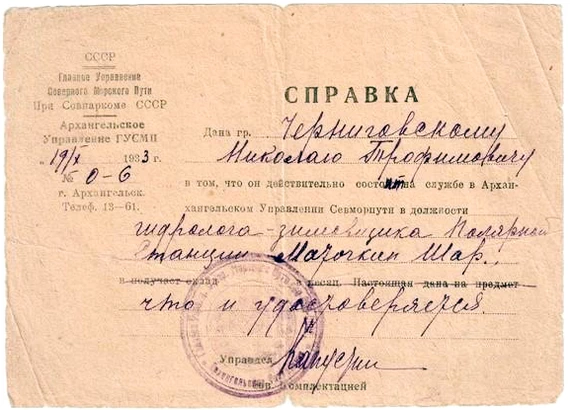 СССР
Главное Управление
Северного Морского Пути
При Совнаркоме СССР
Архангельское
Управление ГУСМП
„19/X 1933 г.
№ О-6
г. Архангельск.
Телеф. 13—61.
СПРАВКА
Дана гр. Черниговскому
Николаю Трофимовичу
в том, что он действительно состоит на службе в Архан-
гельском Управлении Севморпути в должности
гидролога-зимовщика Полярной
Станции Маточкин Шар,
и получает оклад в месяц. Настоящая дана на предмет
что и удостоверяется.
Управдел
Зав. Комплектацией